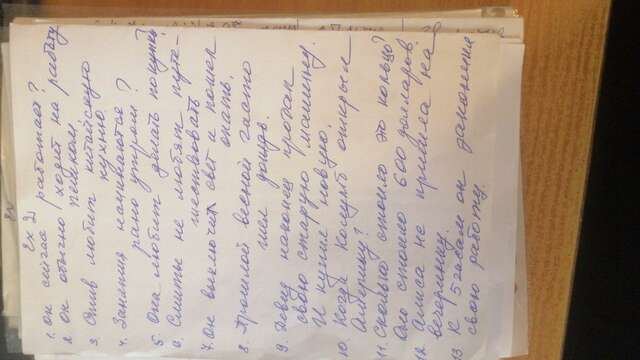 Ex 21
1. Он сейчас работает?
2. Он обычно ходит на работу
пешком.
3. Стив любит китайскую
кухню.
4. Занятия начинаются
рано утром?
5. Она любит делать покупки.
6. Смиты не любят путе-
шествовать.
7. Он выключил свет и пошел
спать.
8. Прошлой весной часто
шел дождь.
9. Дэвид наконец продал
свою старую машину
и купил новую.
10. Когда Колумб открыл
Америку?
11. Сколько стоило это кольцо?
Оно стоило 600 долларов.
12. Алиса не пришла на
вечеринку.
13. К 5 часам он закончил
свою работу.